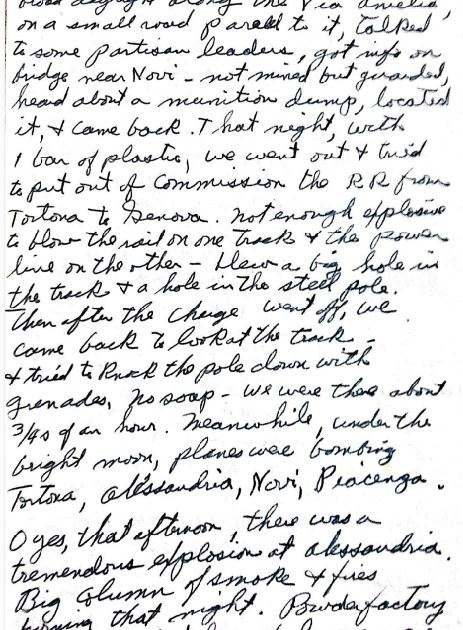 broad daylight along the Via Emelia,
on a small road parallel to it, talked
to some partisan leaders, got info on
bridge near Novi - not mined but guarded,
heard about a munition dump, located
it, & came back. That night, with
1 bar of plastic, we went out & tried
to put out of Commission the RR from
Tortona to Genova. not enough explosive
to blow the rail on one track & the power
line on the other - blew a big hole in
the track & a hole in the steel pole.
Then after the charge went off, we
came back to look at the track -
& tried to knock the pole down with
grenades, no soap - we were there about
3/4s of an hour. Meanwhile, under the
bright moon, planes were bombing
Tortona, Alessandria, Novi, Piacenza.
O yes, that afternoon, there was a
tremendous explosion at Alessandria.
Big column of smoke & fires
burning that night. Powder factory